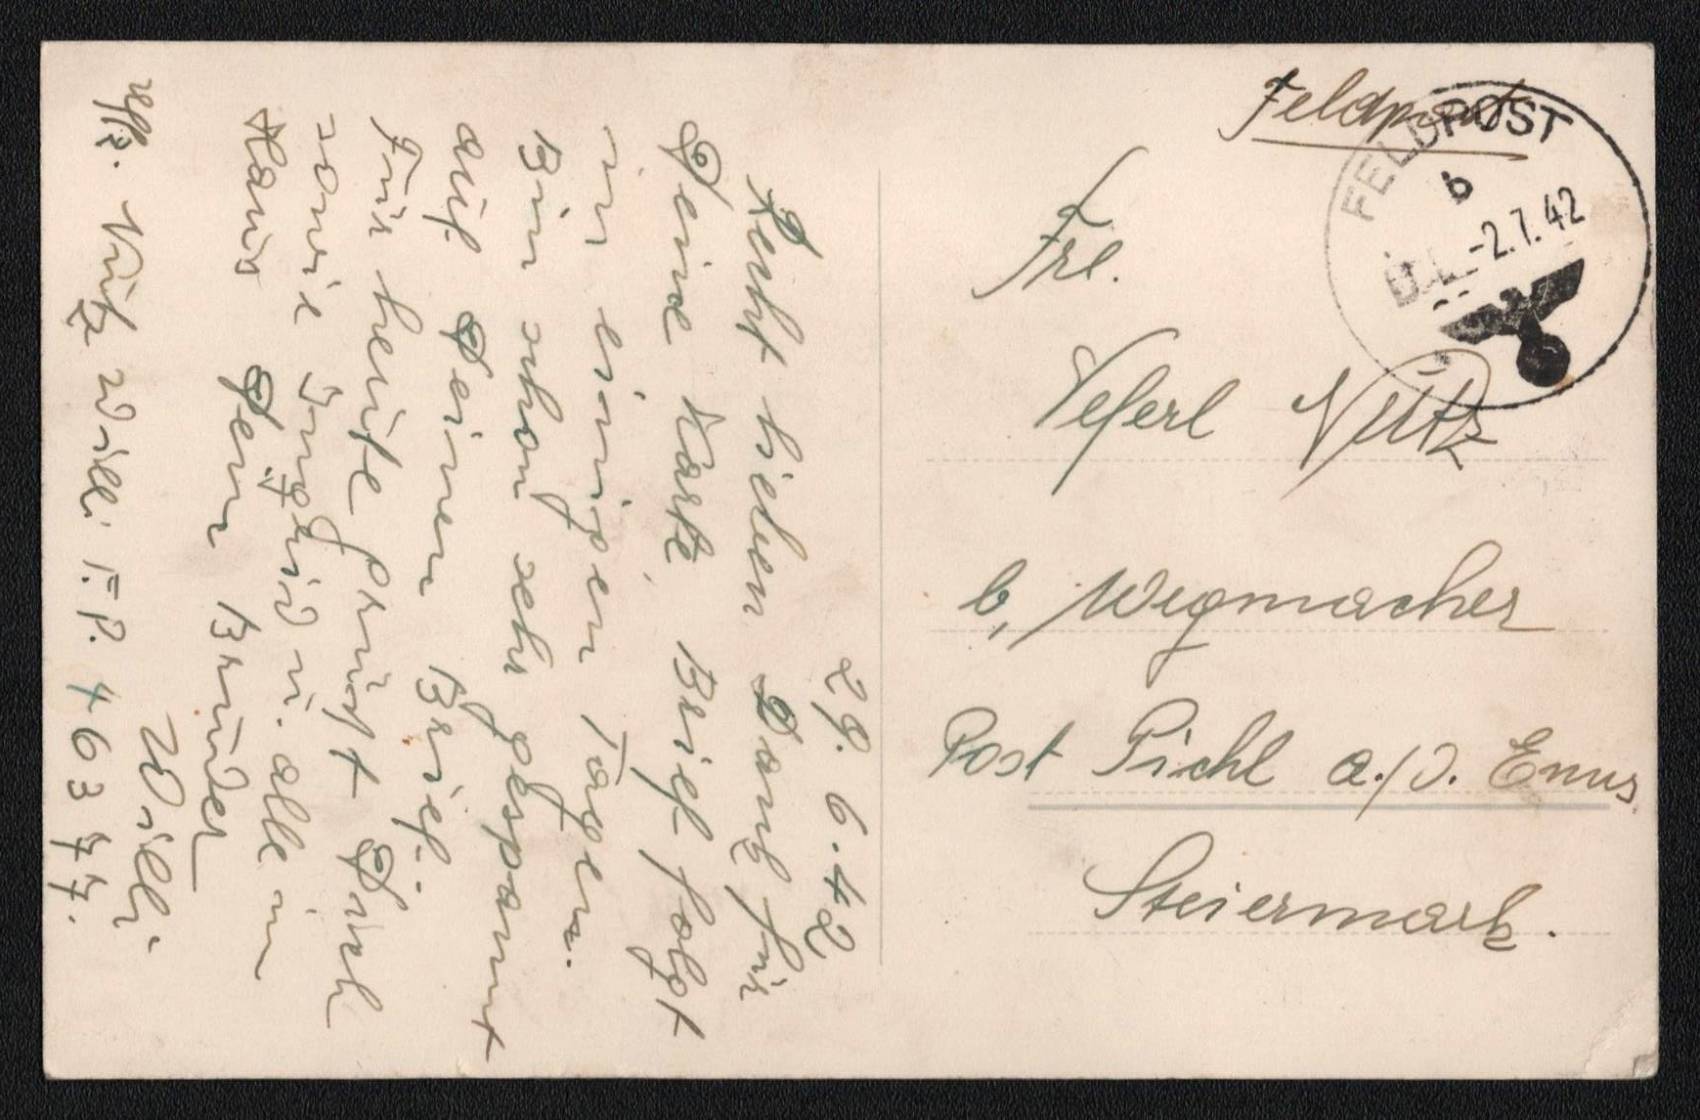 29. 6. 42
Recht lieben Dank für
Deine Karte, Brief folgt
in einigen Tagen.
Bin schon sehr gespannt
auf Deinen Brief.
Für heute grüßt Dich
sowie Ingrid u. alle im
Haus Dein Bruder
Willi.
Uffz. Nütz Willi F.P. 46377.
Feldpost
FELDPOST
b
-2.7.42
Frl.
Veferl Nütz
b, Wegmacher
Post Pichl a./d. Enns
Steiermark.